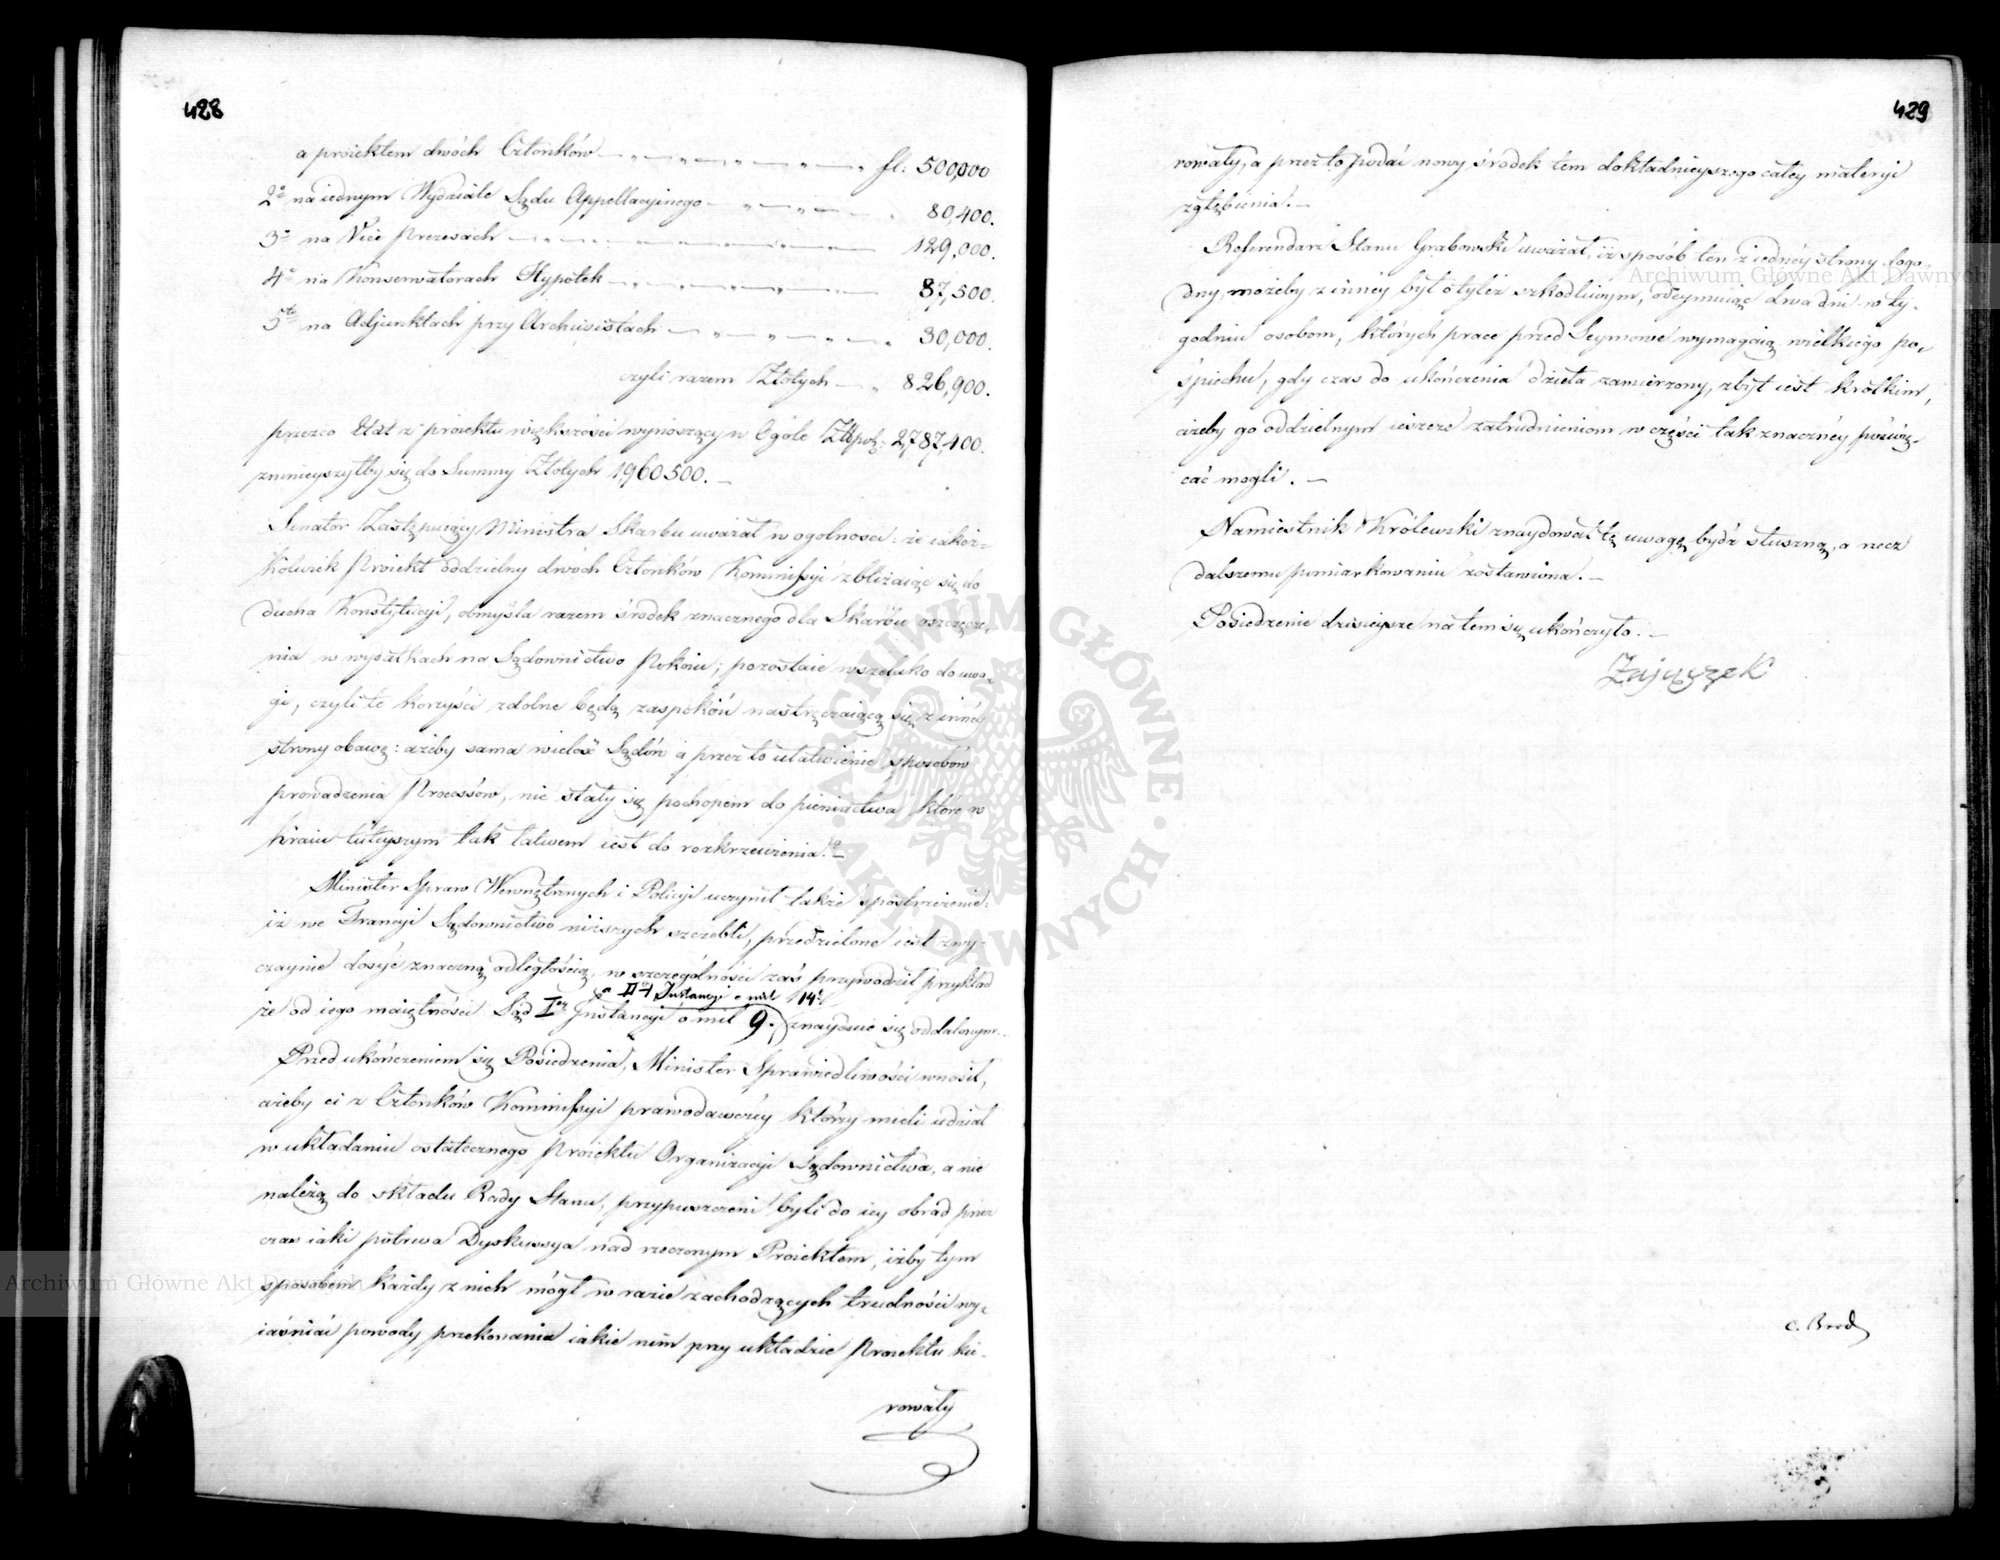 428
a proiektem dwóch Członków fl: 500,000
2º na iednym Wydziale Sądu Appellacyinego 80,400.
3º na Vice Prezesach 129,000.
4º na Konserwatorach Hypotek 87,500.
5to na Adjunktach przy Archiwistach 30,000.
czyli razem Złotych 826,900.
przezco Etat z proiektu większości wynoszący w Ogóle Złłpol: 2,787,400.
zmnieyszyłby się do Summy Złotych 1,960,500. —
Senator Zastępuiący Ministra Skarbu uważał w ogolności: że iakoż-
kolwiek Proiekt oddzielny dwóch Członków Kommissyi zbliżaiąc się do
ducha Konstytucyi, obmyśla razem środek znacznego dla Skarbu oszczędze-
nia w wydatkach na Sądownictwo Pokoiu; pozostaie wszelako do uwa-
gi, czyli te korzyści zdolne będą zaspokoić nastręczaiącą się z innéy
strony obawę: ażeby sama wielość Sądów a przez to ułatwienie sposobów
prowadzenia Processów, nie stały się pochopem do pieniactwa które w
kraiu tuteyszym tak łatwem iest do rozkrzewienia? —
Minister Spraw Wewnętrznych i Policyi uczynił także spostrzeżenie:
iż we Francyi Sądownictwo niższych szczebli, przedzielone iest zwy-
czaynie dosyć znaczną odległością, w szczególności zaś przywodził przykład
a IIéy Instancyi o mil 14.
że od iego maiętności Sąd Iéy Instancyi o mil 9. znayduie się oddalonym.
Przed ukończeniem się Posiedzenia, Minister Sprawiedliwości wnosił,
ażeby ci z Członków Kommissyi prawodawczéy którzy mieli udział
w układaniu ostatecznego Proiektu Organizacyi Sądownictwa, a nie
należą do składu Rady Stanu, przypuszczeni byli do iey obrad przez
czas iaki potrwa Dyskussya nad rzeczonym Proiektem, iżby tym
sposobem każdy z nich mógł w razie zachodzących trudności wy-
iaśniać powody przekonania iakie nim przy układzie Proiektu kie-
rowały
429
rowały, a przez to podać nowy środek tem dokładnieyszego całey materyi
zgłębienia. —
Referendarz Stanu Grabowski uważał, iż sposób ten z iednéy strony dogo-
dny, możeby z innéy był o tyleż szkodliwym, odeymuiąc dwa dni w ty-
godniu osobom, których prace przed Seymowe wymagaią wielkiego po-
śpiechu, gdy czas do ukończenia dzieła zamierzony, zbyt iest krótkim,
ażeby go oddzielnym ieszcze zatrudnieniom w części tak znacznéy poświę-
cać mogli. —
Namiestnik Królewski znaydował tę uwagę bydź słuszną, a rzecz
dalszemu pomiarkowaniu zostawiona. —
Posiedzenie dzisieysze na tem się ukończyło. —
Zajączek
C. Brod
ARCHIWUM GŁÓWNE AKT DAWNYCH
Archiwum Główne Akt Dawnych
Archiwum Główne Akt Dawnych